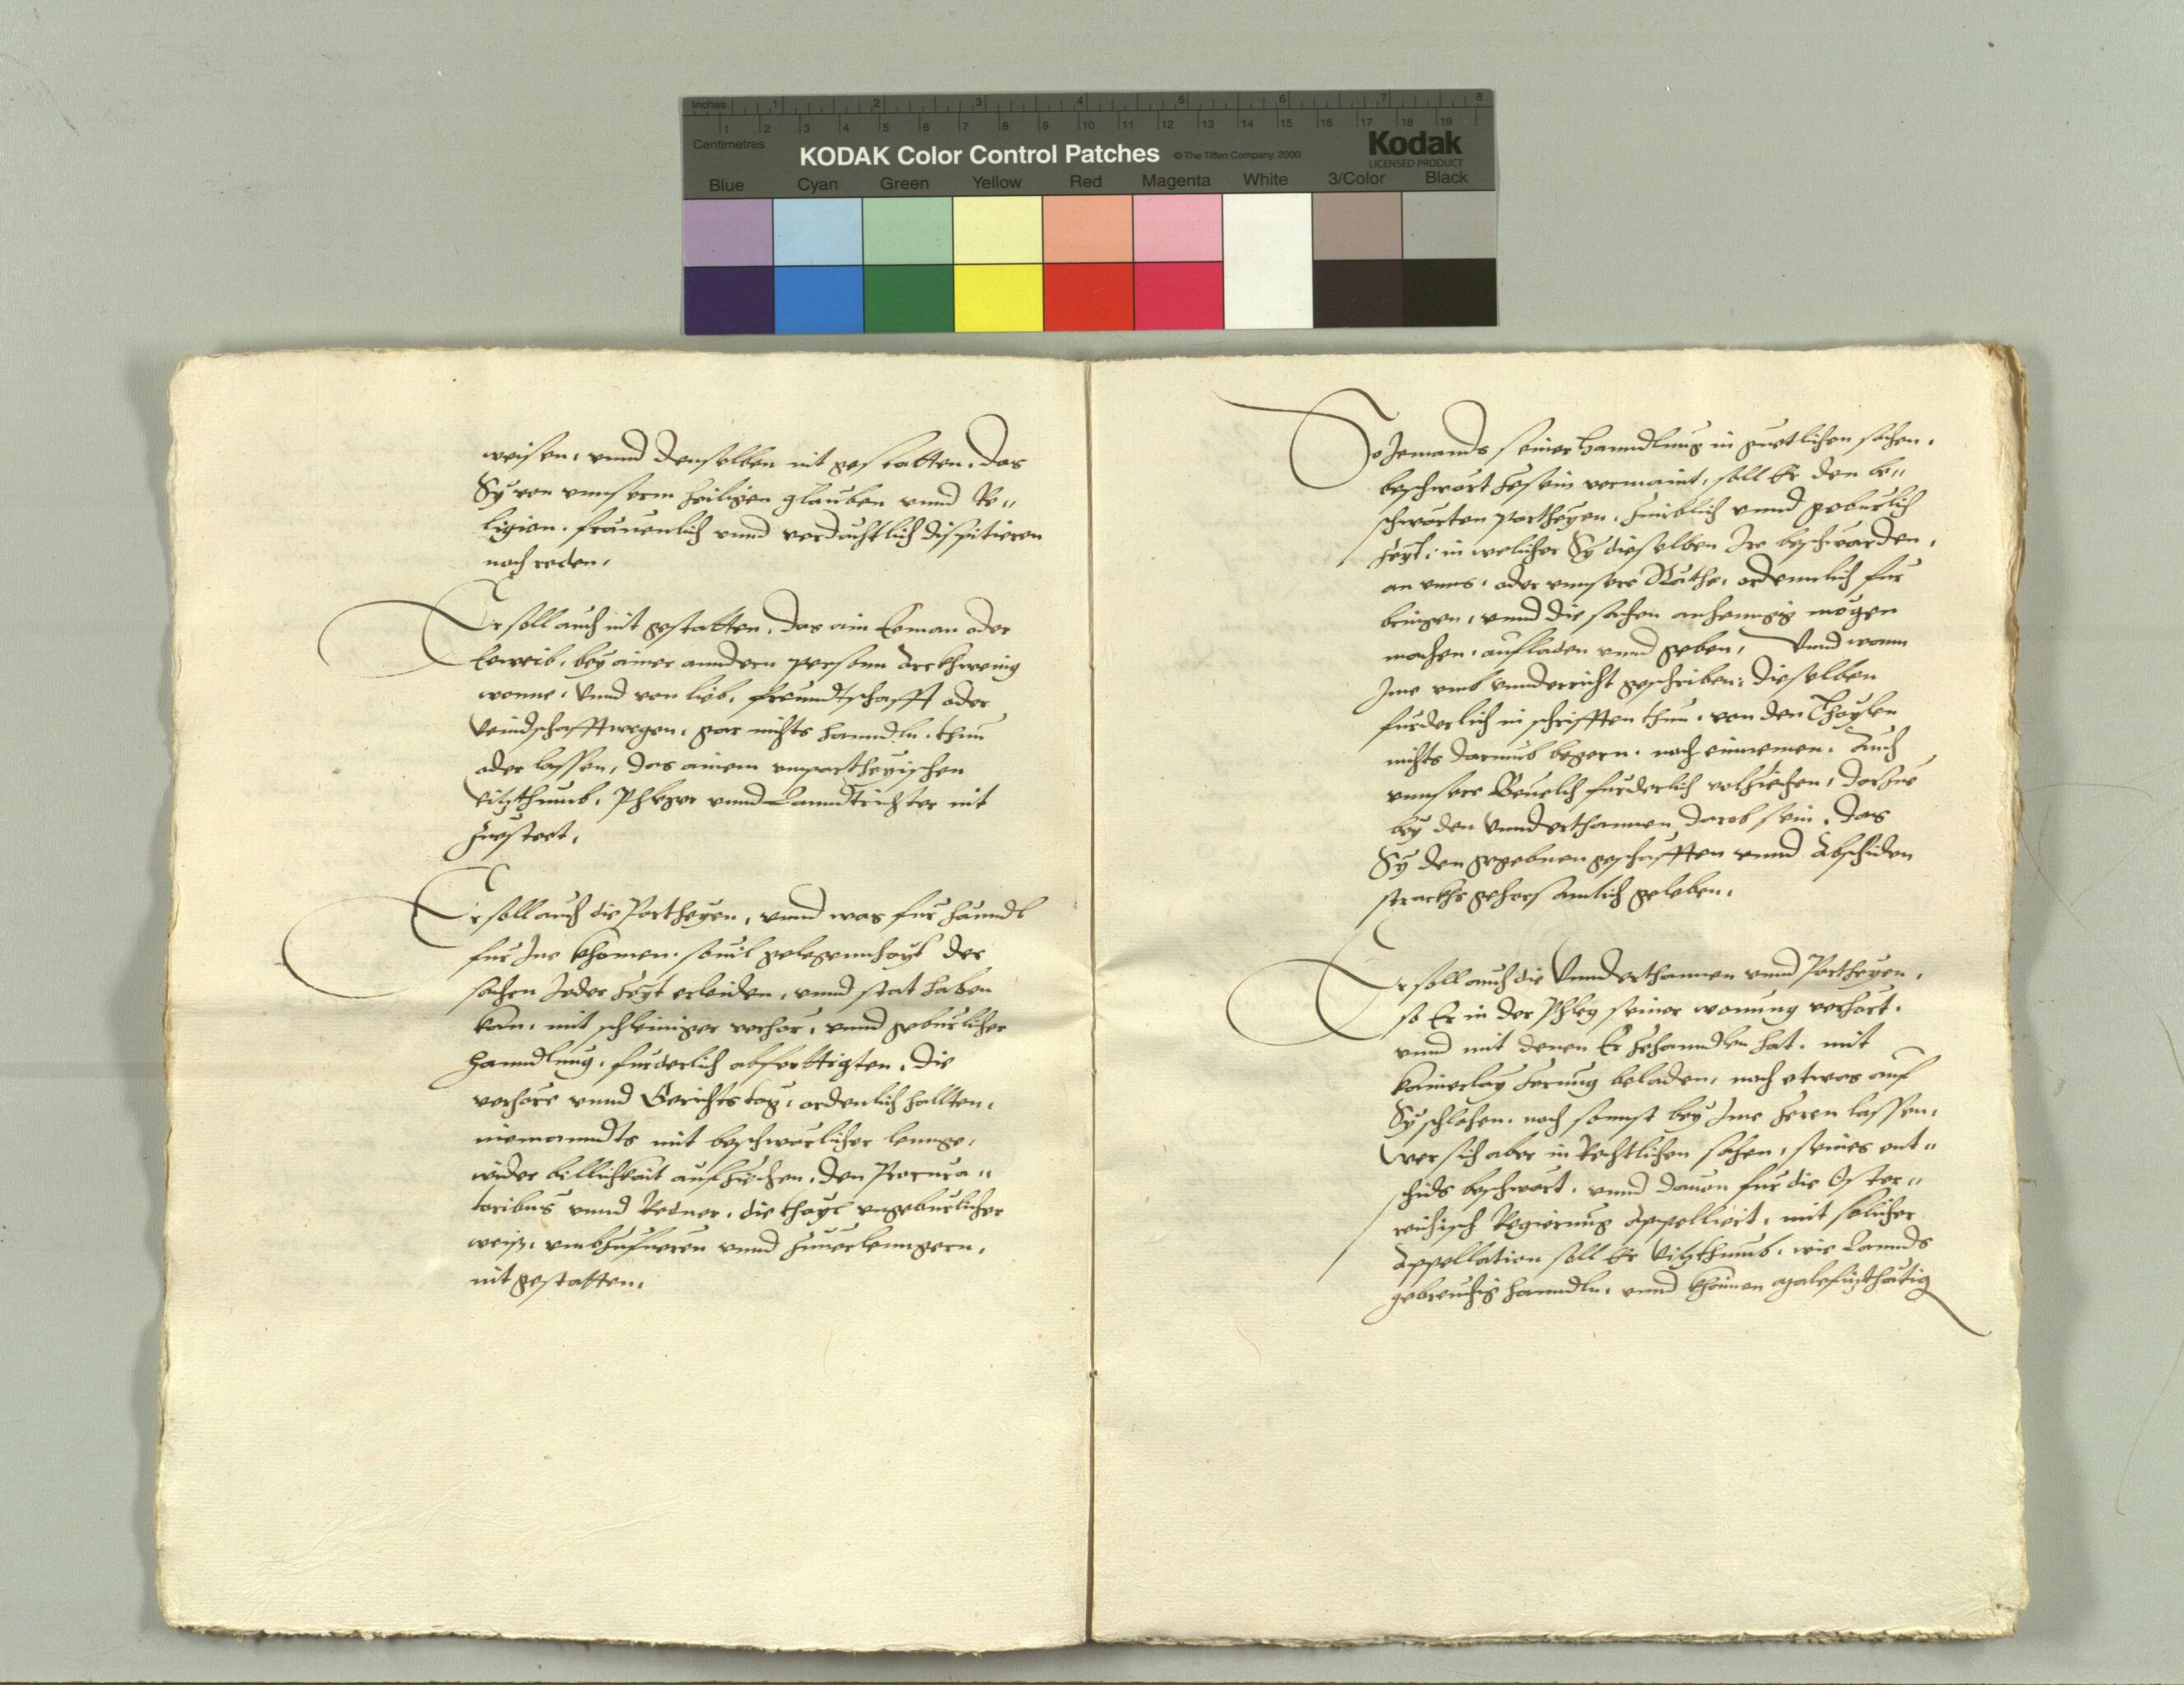 Inches 1 2 3 4 5 6 7 8
1 2 3 4 5 6 7 8 9 10 11 12 13 14 15 16 17 18 19
Centimetres
KODAK Color Control Patches © The Tiffen Company, 2000 Kodak
LICENSED PRODUCT
Blue Cyan Green Yellow Red Magenta White 3/Color Black
weisen, vnnd denselben nit gestatten, das
Sy von vnnserm heiligen glauben vnnd Re„
ligion, frauenlich vnnd verdachtlich dispitieren
noch reden,
Er soll auch nit gestatten, das ain Eeman oder
Eeweib, bey ainer anndern person
wonne, Vnnd von lieb, freundtschafft oder
Veindschafft wegen, gar nichts hanndln, thun
oder lassen, das ainem vnpartheyischen
Vitzthumb, Phleger vnnd Lanndtrichter nit
zuesteet,
Er soll auch die Partheyen, vnnd was fur hanndl
fur Ine khomen, souil gelegennhayt der
sachen Jeder Zeyt erleiden, vnnd stat haben
kan, mit schleiniger verhör, vnnd geburlicher
Hanndlung, furderlich abferttigten, die
verhöre vnnd Gerichtstag, ordenlich hallten,
niemanndts mit beschwärlicher lennge,
wider billichkait aufziehen, den Procura„
toribus vnnd Redner, die thayl vngeburlicher
weiß, vmbzufueren vnnd zuuerlenngern,
nit gestatten,
So Jemands seiner Hanndlung in guetlichen sachen,
beschwärt ze sein vermaint, soll Er den be„
schwärten partheyen, vnnd geburlich
Zeyt, in welicher Sy dieselben Ire beschwärden,
an vnns, oder vnnsere Räthe, ordennlich fur
bringen, vnnd die sachen anhenngig mögen
machen, aufladen vnnd geben, Vnnd wann
Ime vmb vnnderricht geschriben, dieselben
furderlich in schrifften thun, von den Thaylen
nichts darumb begern, noch einnemen, Auch
vnnsere Beuelch furderlich volziehen, darzue
bey den Vnnderthannen darob sein, das
Sy den gegebnen geschafften vnnd Abschiden
strackhs gehorsamlich geleben,
Er soll auch die Vnnderthannen vnnd Partheyen,
so Er in der Phleg seiner wonung verhört,
vnnd mit denen Er zehanndlen hat, mit
kainerlay Zerung beladen, noch etwas auf
Sy schlahen, noch sonnst bey Ime zeren lassen,
Wer sich aber in Rechtlichen sachen, seines ent„
schids beschwärt, vnnd dauon fur die Oster„
reichisch Regierung Appelliert, mit solicher
Appellation soll Er Vitzthumb, wie Lannds
gebreuchig hanndln, vnnd khainen